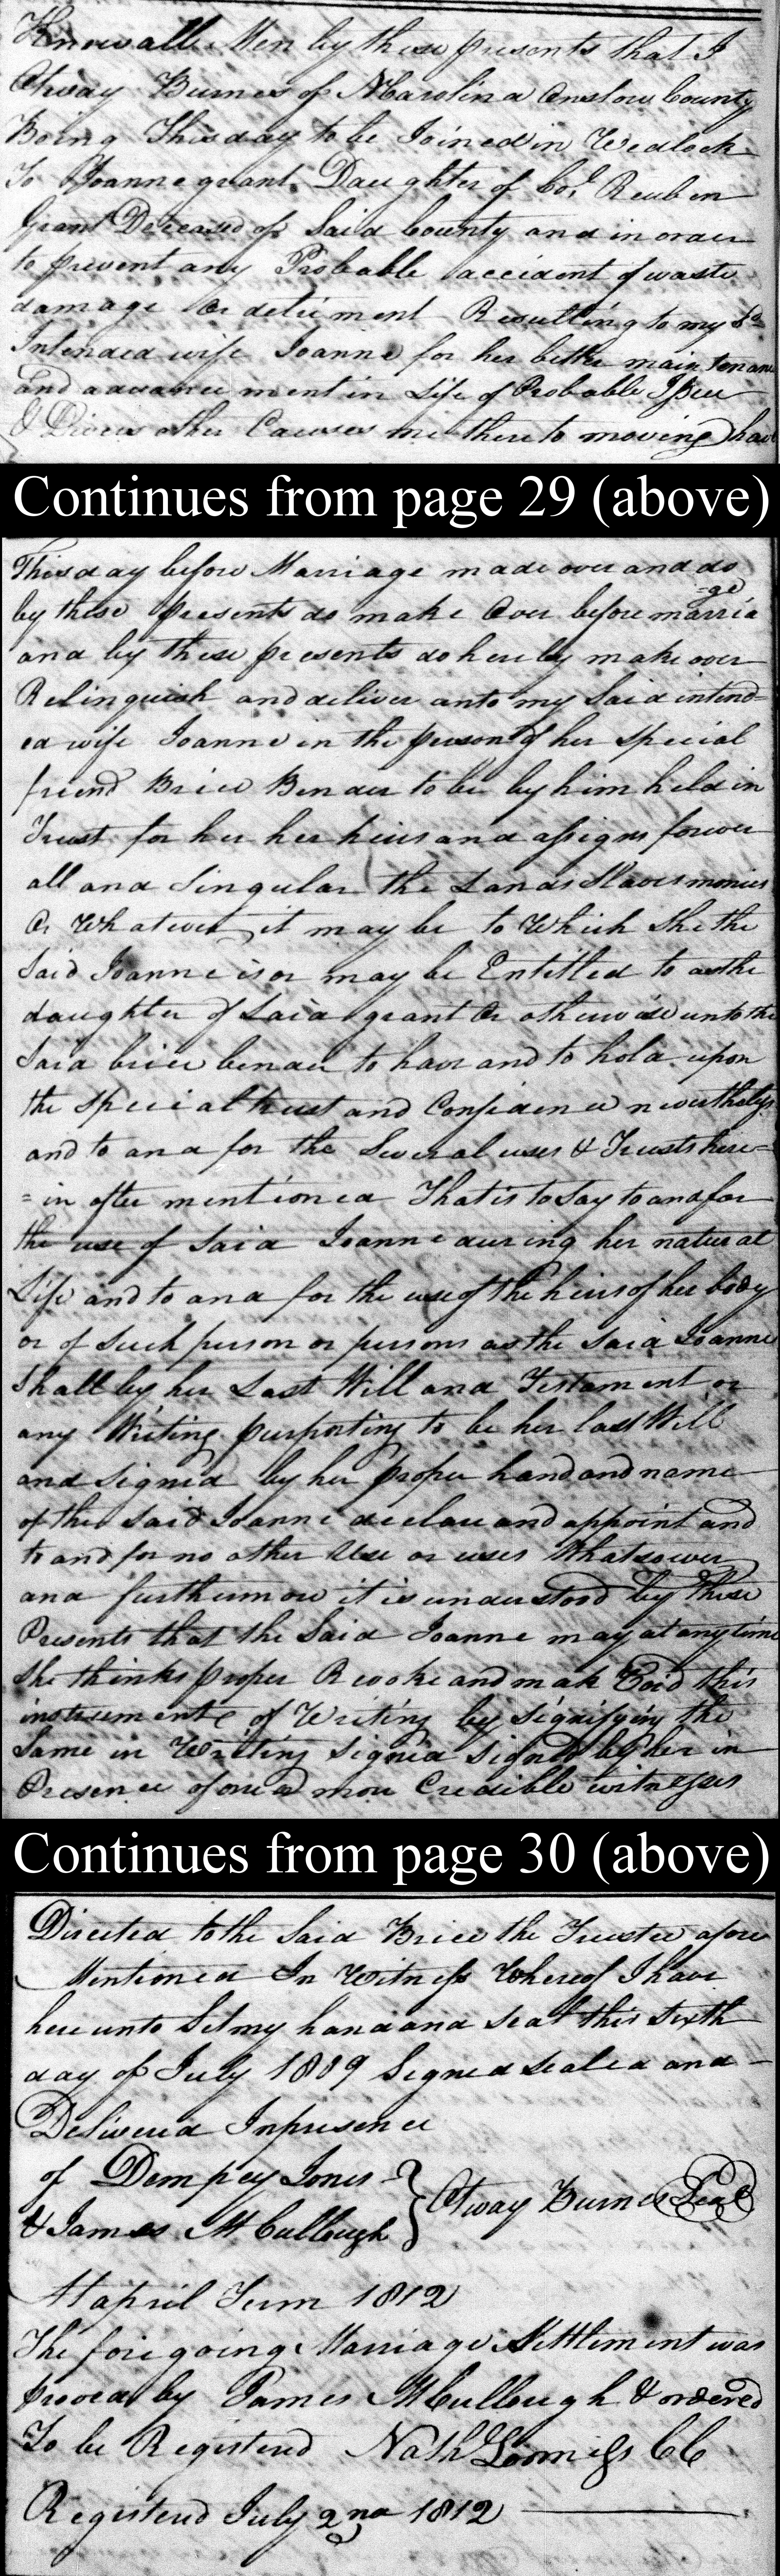 Know all Men by these presents that I
Otway Burnes of N Carolina Onslow County
Being This day to be Joined in Wedlock
To Joanne grant Daughter of Col Reuben
Grant Deceased of Said County and in order
to prevent any Probable accident of waste
damage Or detriment Resulting to my sd
Intended wife Joanne for her better maintenance
and advancement in Life of Probable Issue
& Divers other Causes me thereto moving have
Continues from page 29 (above)
This day before Marriage made over and do
by these presents do make Over before marria
=ge
and by these presents do hereby make over
Relinquish and deliver unto my Said intend=
ed wife Joanne in the person of her special
friend Brice Bender to be by him held in
Trust for her her heirs and assigns forever
all and Singular the Lands Slaves monies
Or Whatever it may be to Which She the
Said Joanne is or may be Entitled to as the
daughter of Said grant Or otherwise unto the
Said brice bender to have and to hold upon
the special trust and Confidence nevertheless
and to and for the Several uses & Trusts here=
=in after mentioned That is to Say to and for
the use of Said Joanne during her natural
Life and to and for the use of the heirs of her body
or of Such person or persons as the Said Joanne
Shall by her Last Will and Testament or
any Writing purporting to be her last Will
and Signed by her proper hand and name
of the Said Joanne declare and appoint and
to and for no other Use or uses Whatsoever
and furthermore it is understood by these
Presents that the Said Joanne may at any time
She thinks proper Revoke and mak Void this
instrument of Writing by Signifying the
Same in Writing Signed Signed by her in
Presence of one or more Credible witnesses
Continues from page 30 (above)
Directed to the Said Brice the Trustee afore
Mentioned In Witness Whereof I have
here unto Set my hand and Seal this Sixth
day of July 1809 Signed Sealed and
Delivered In presence
of Dempsey Jones
& James McCullough } Otway Burnes Seal
At april Term 1812
The fore going Marriage Settlement was
proved by James McCullough & ordered
To be Registered Nath Loomiss CC
Registered July 2nd 1812